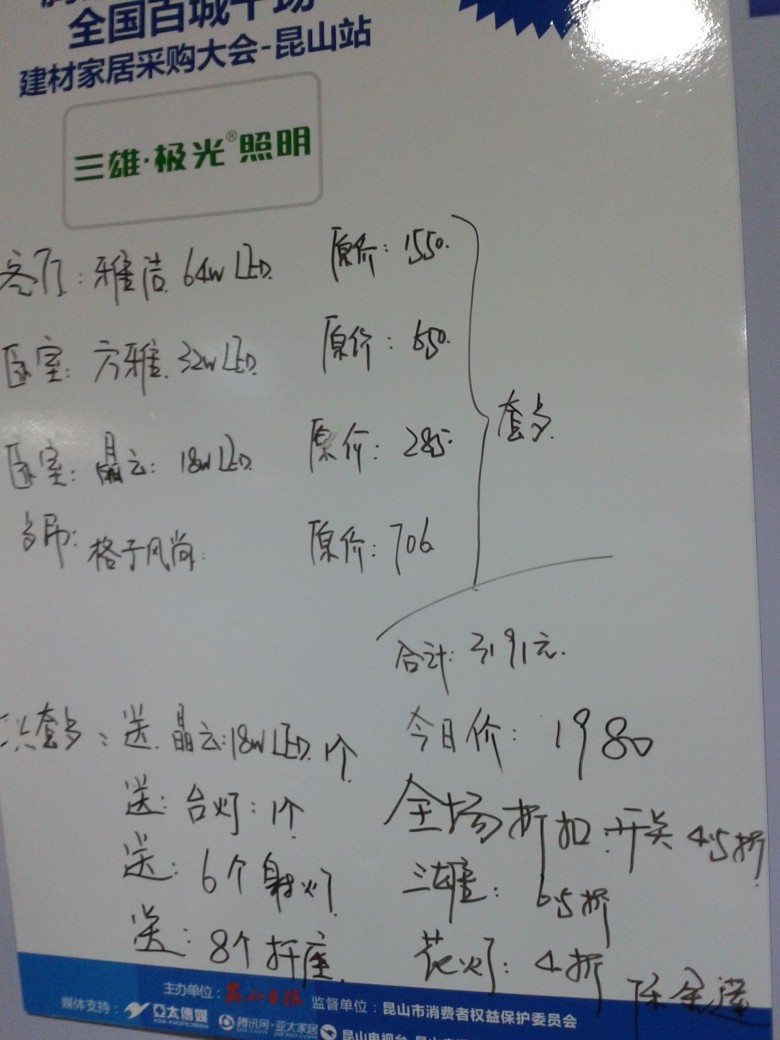 全国百城千场
建材家居采购大会-昆山站
三雄·极光®照明
客厅：雅洁 64w LED 原价：1550.
卧室：方雅 32w LED 原价：650. 套餐
卧室：晶云：18w LED 原价：285
格子风尚 原价：706
合计：3191元.
送 晶云：18w LED 1个 今日价：1980
送：台灯：1个 全场折扣：开关 4.5折
送：6个射灯 三雄：6.5折
送：8个插座 花灯：4折
主办单位：昆山日报 监督单位：昆山市消费者权益保护委员会
媒体支持： 亞太傳媒 腾讯网·亚太家居 昆山电视台